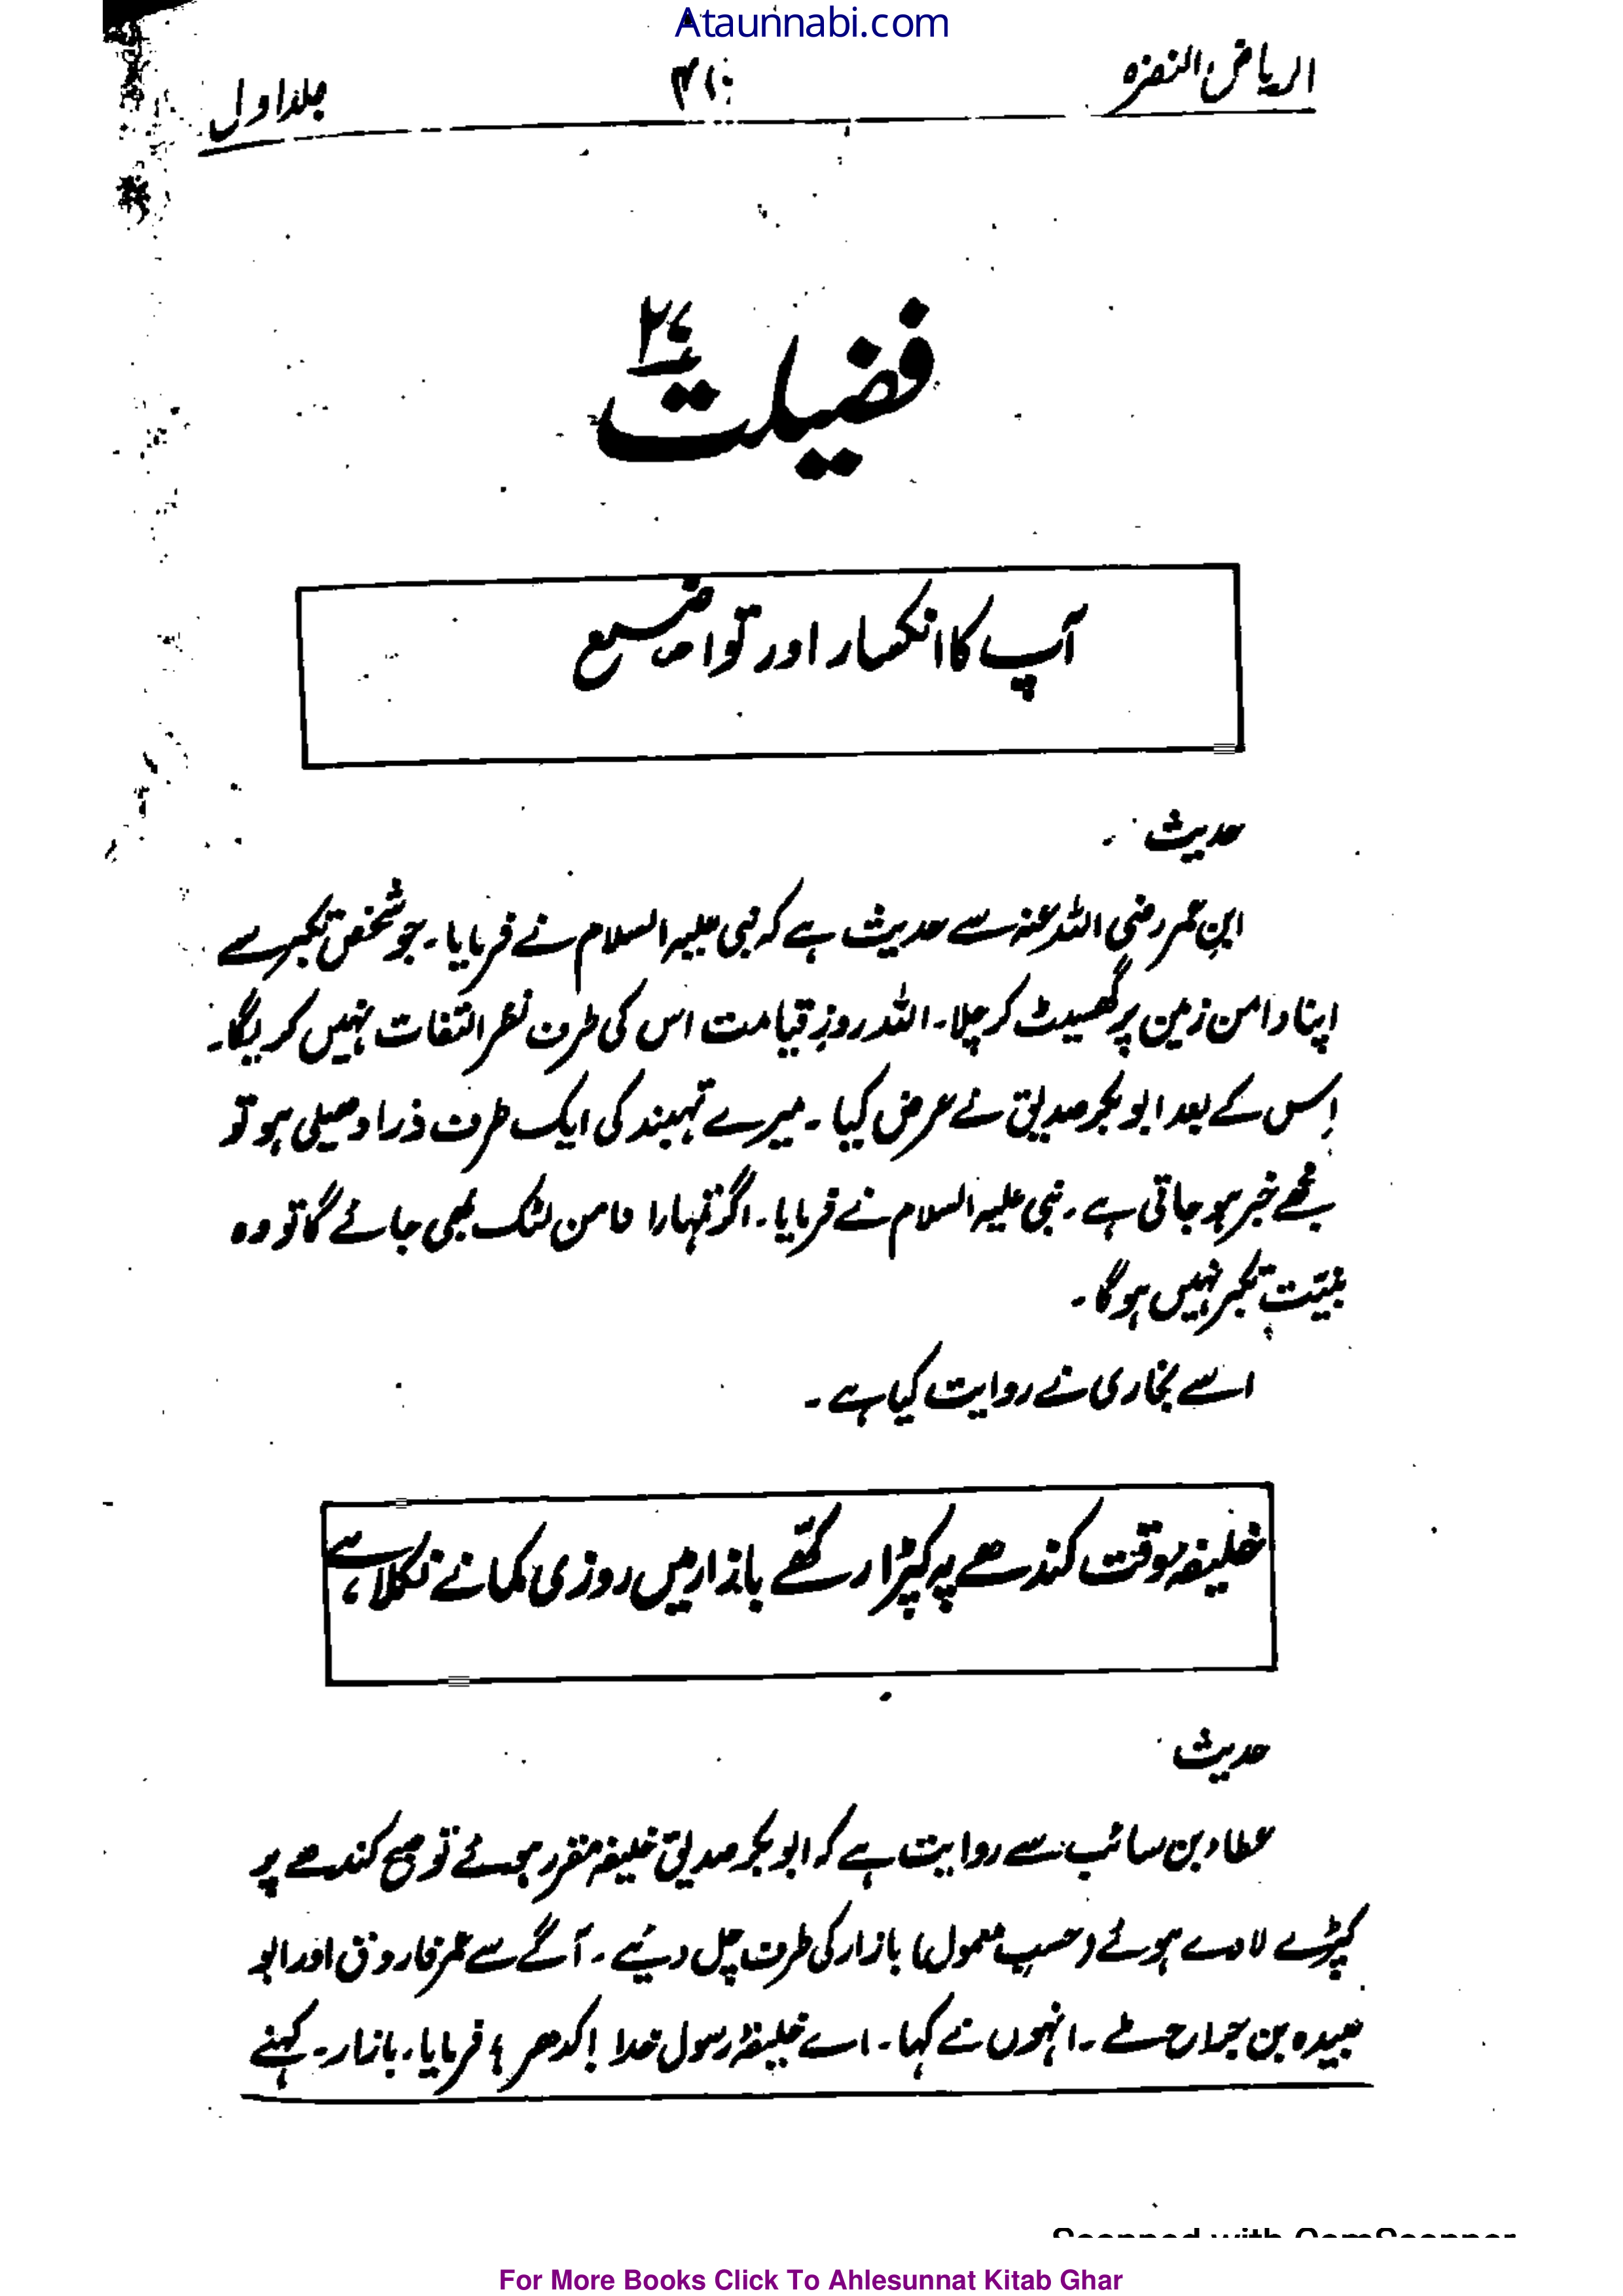 Ataunnabi.com
الریاض النضرہ
جلد اول
فضیلت
آپ کا انکسار اور تواضع
حدیث
ابن عمر رضی اللہ عنہ سے حدیث ہے کہ نبی علیہ السلام نے فرمایا۔ جو شخص تکبر سے
اپنا دامن زمین پر گھسیٹ کر چلا۔ اللہ روزِ قیامت اس کی طرف نظر التفات نہیں کریگا۔
اِس کے بعد ابو بکر صدیق نے عرض کیا۔ میرے تہبند کی ایک طرف ذرا ڈھیلی ہو تو
مجھے خبر ہو جاتی ہے۔ نبی علیہ السلام نے فرمایا۔ اگر تمہارا دامن لٹک بھی جائے گا تو وہ
بنیّت تکبر نہیں ہوگا۔
اسے بخاری نے روایت کیا ہے۔
خلیفہ وقت کندھے پہ کپڑا رکھے بازار میں روزی کمانے نکلا ہے،
حدیث
عطاء بن سائب سے روایت ہے کہ ابو بکر صدیق خلیفہ مقرر ہوئے تو صبح کندھے پر
کپڑے لادے ہوئے (حسبِ معمول) بازار کی طرف چل دیئے۔ آگے سے عمر فاروق اور ابو
عبیدہ بن جراح ملے۔ انہوں نے کہا۔ اے خلیفۂ رسول خدا! کدھر؟ فرمایا۔ بازار۔ کہنے
Scanned with CamScanner
For More Books Click To Ahlesunnat Kitab Ghar